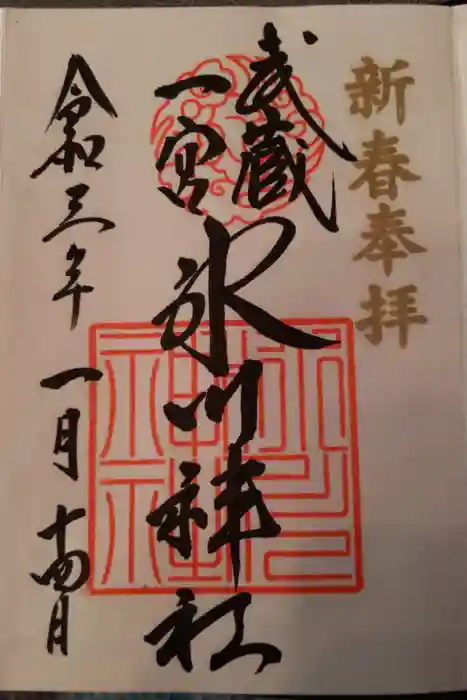 新春奉拝
武蔵
一宮
氷川神社
令和三年一月十四日
氷川神社